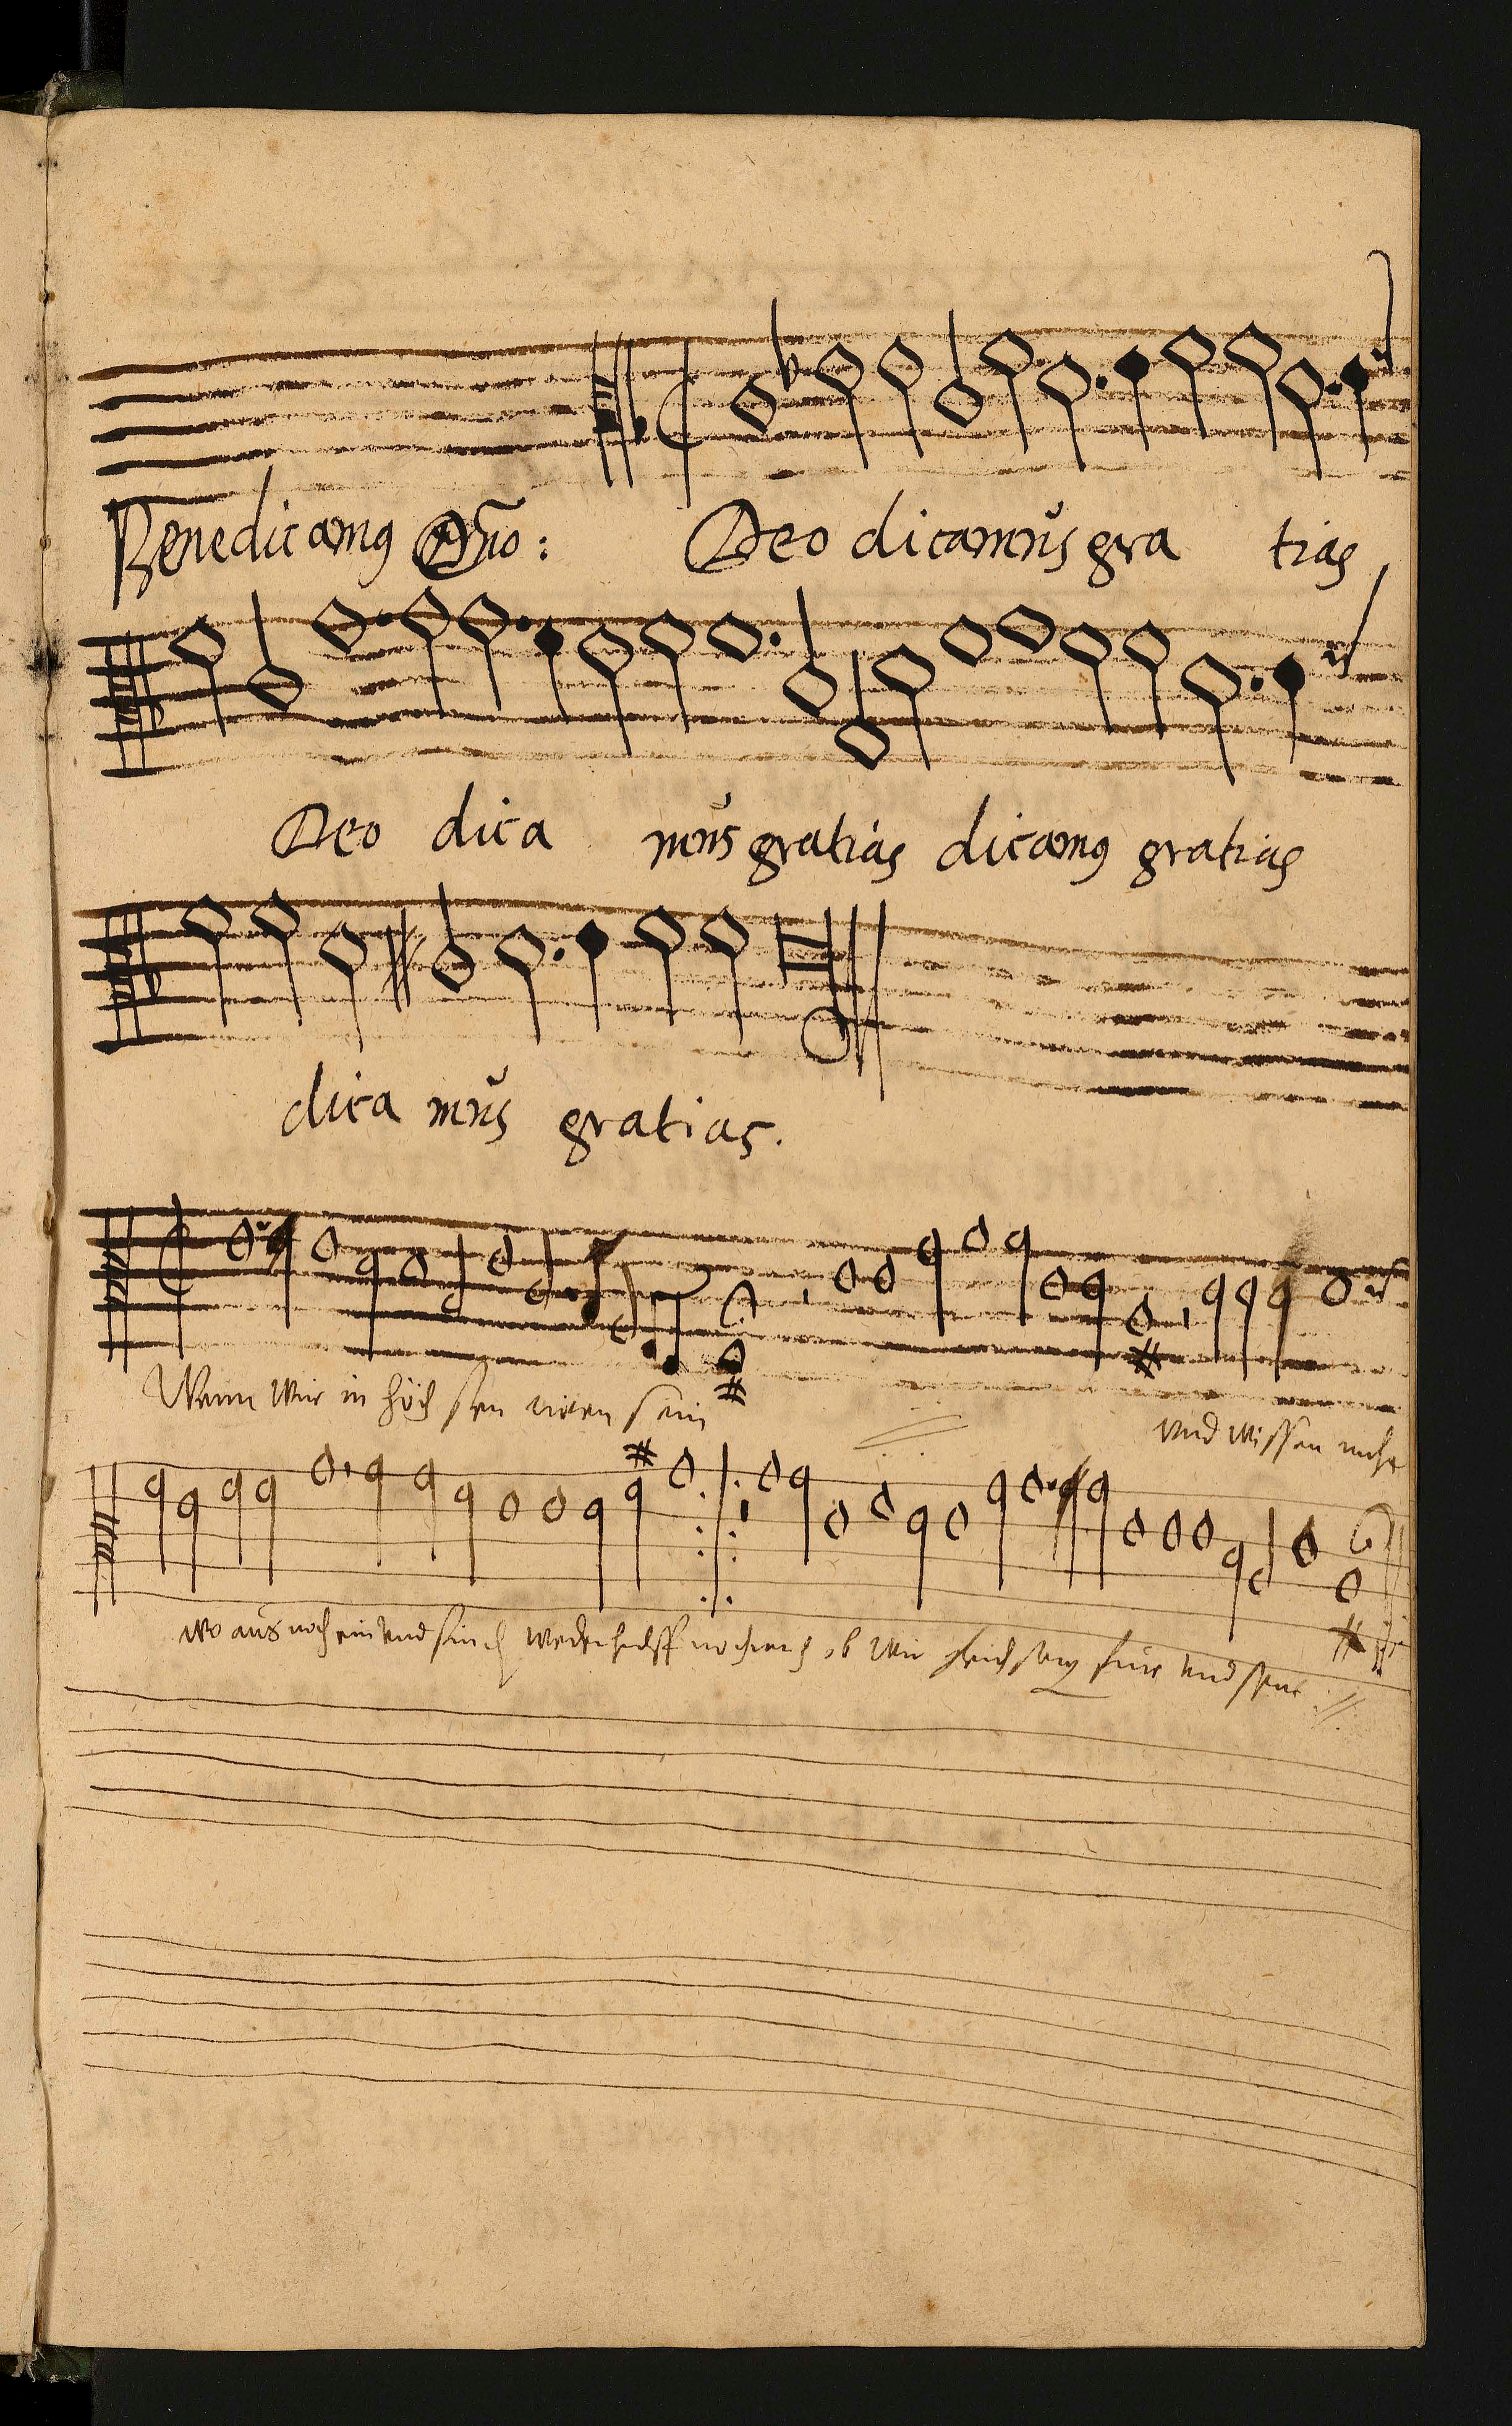 Benedicamꝰ Dño: Deo dicamus gra tias
Deo dica mus gratias dicamꝰ gratias
dica mus gratias.
Wenn wir in höch sten nöten sein
vnd wissen nicht
wo aus noch ein vnd finden weder hülff noch rath ob wir gleich sorgen früe vnd spat